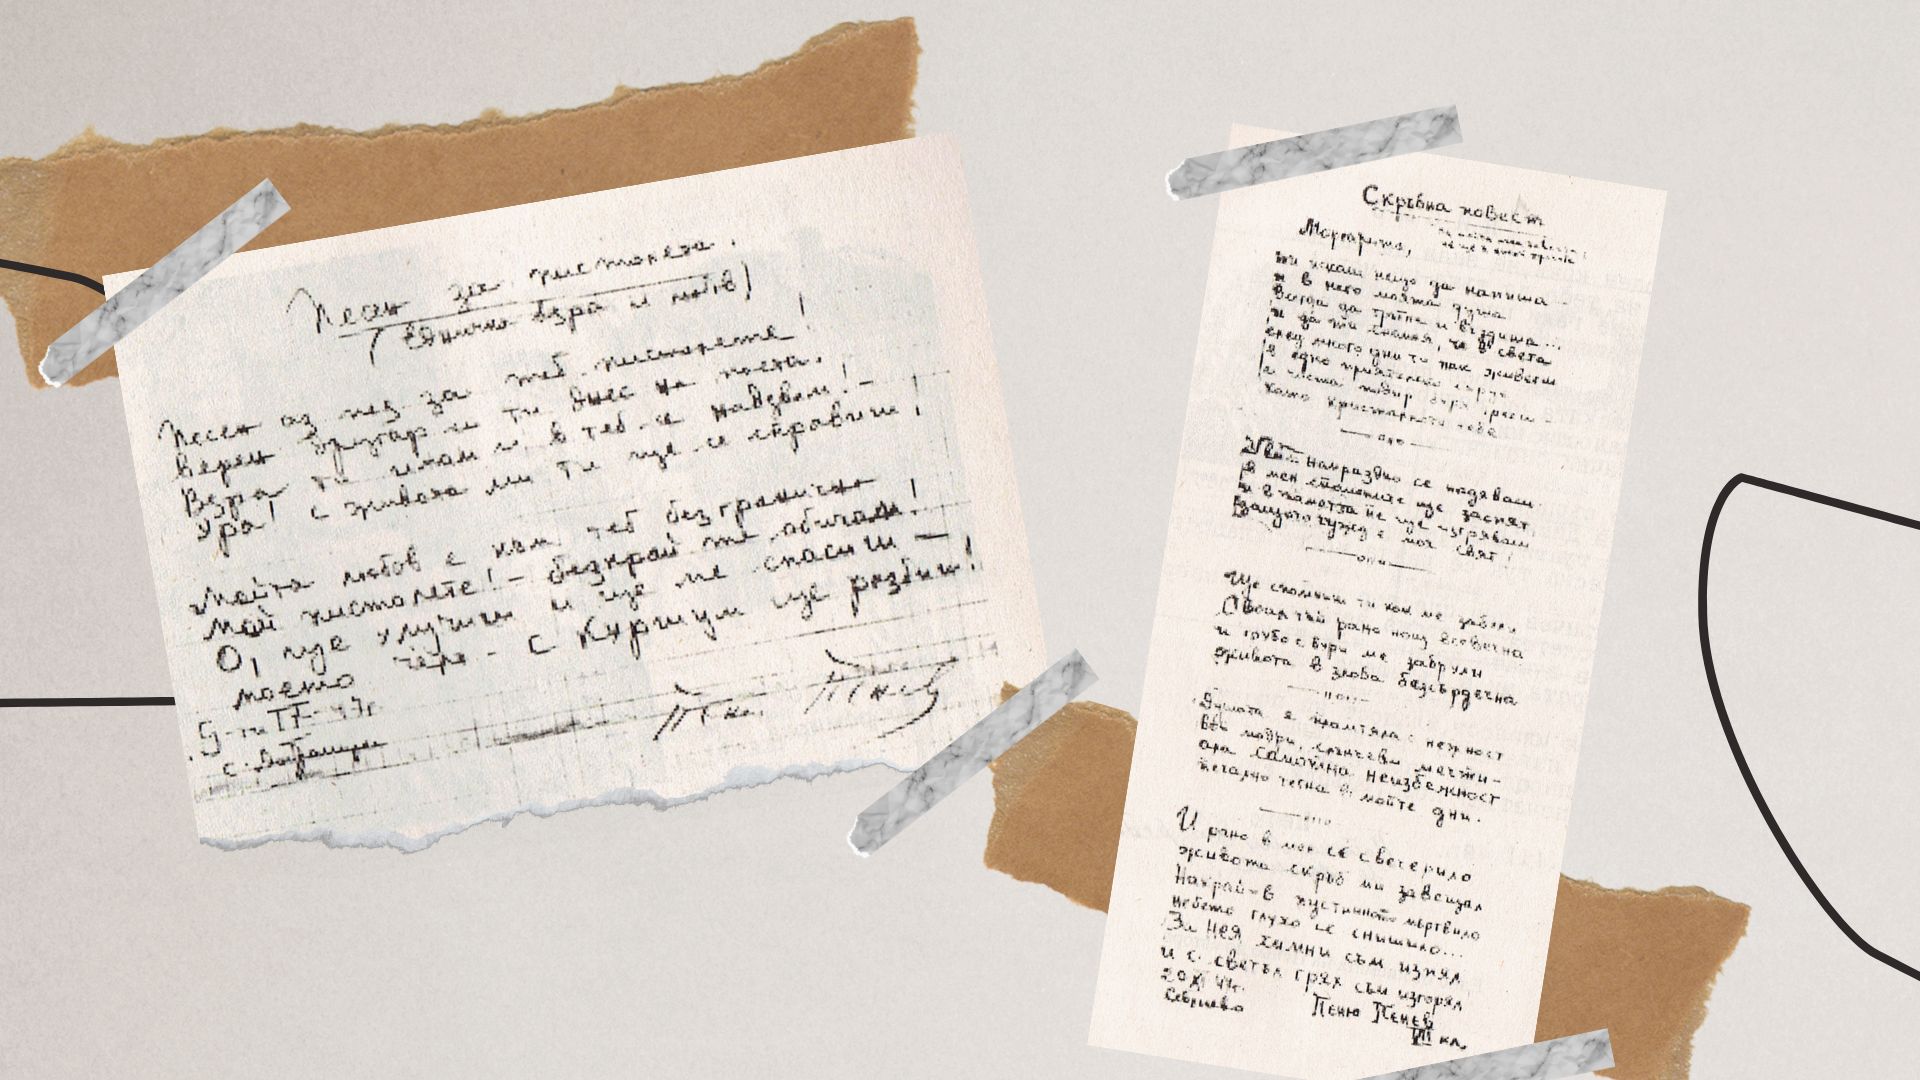 Песен за пистолета.
(Единична вяра и любов)
Песен аз пея за теб пистолете!
Верен другар си ти днес на поета.
Вяра ти имам и в теб се надявам! –
Ура! с живота ми ти ще се справиш!
Мойта любов е към теб безгранична
Мой пистолете! – безкрай те обичам!
О, ще улучиш и ще ме спасиш –
моето чело – с куршум ще разбиш!
5-ти 47г.
с.
Пеню Пенев
Скръбна повест
Маргарита,
ти искаш нещо да напиша –
и в него моята душа
Всегда да тръпне и въздиша...
и да ти спомня, че в света
след много дни ти пак живееш
в едно приятелско сърце
и чиста подир буря грееш –
като кристалното небе
Уви! Напразно се надяваш
в мен спомените ще заспят
и в паметта не ще изгряваш
Защото чужд е моя свят!
Ще спомниш ти как ме завели
Своя чар рано нощ всевечна
и грубо с бури ме забрули
живота в злоба безсърдечна
Душата е копнтяла с нежност
във модри, слънчеви мечти –
ала самотна неизбежност
печално тегна в мойте дни.
И рано в мен се е свечерило
живота скръб ми завещал
Накрай в пустинното мъртвило
небето глухо се снишило...
За Нея химни съм изпял
и с светъл грях съм изгорял
20 XI 47г.
Севлиево Пеню Пенев
VIII кл.